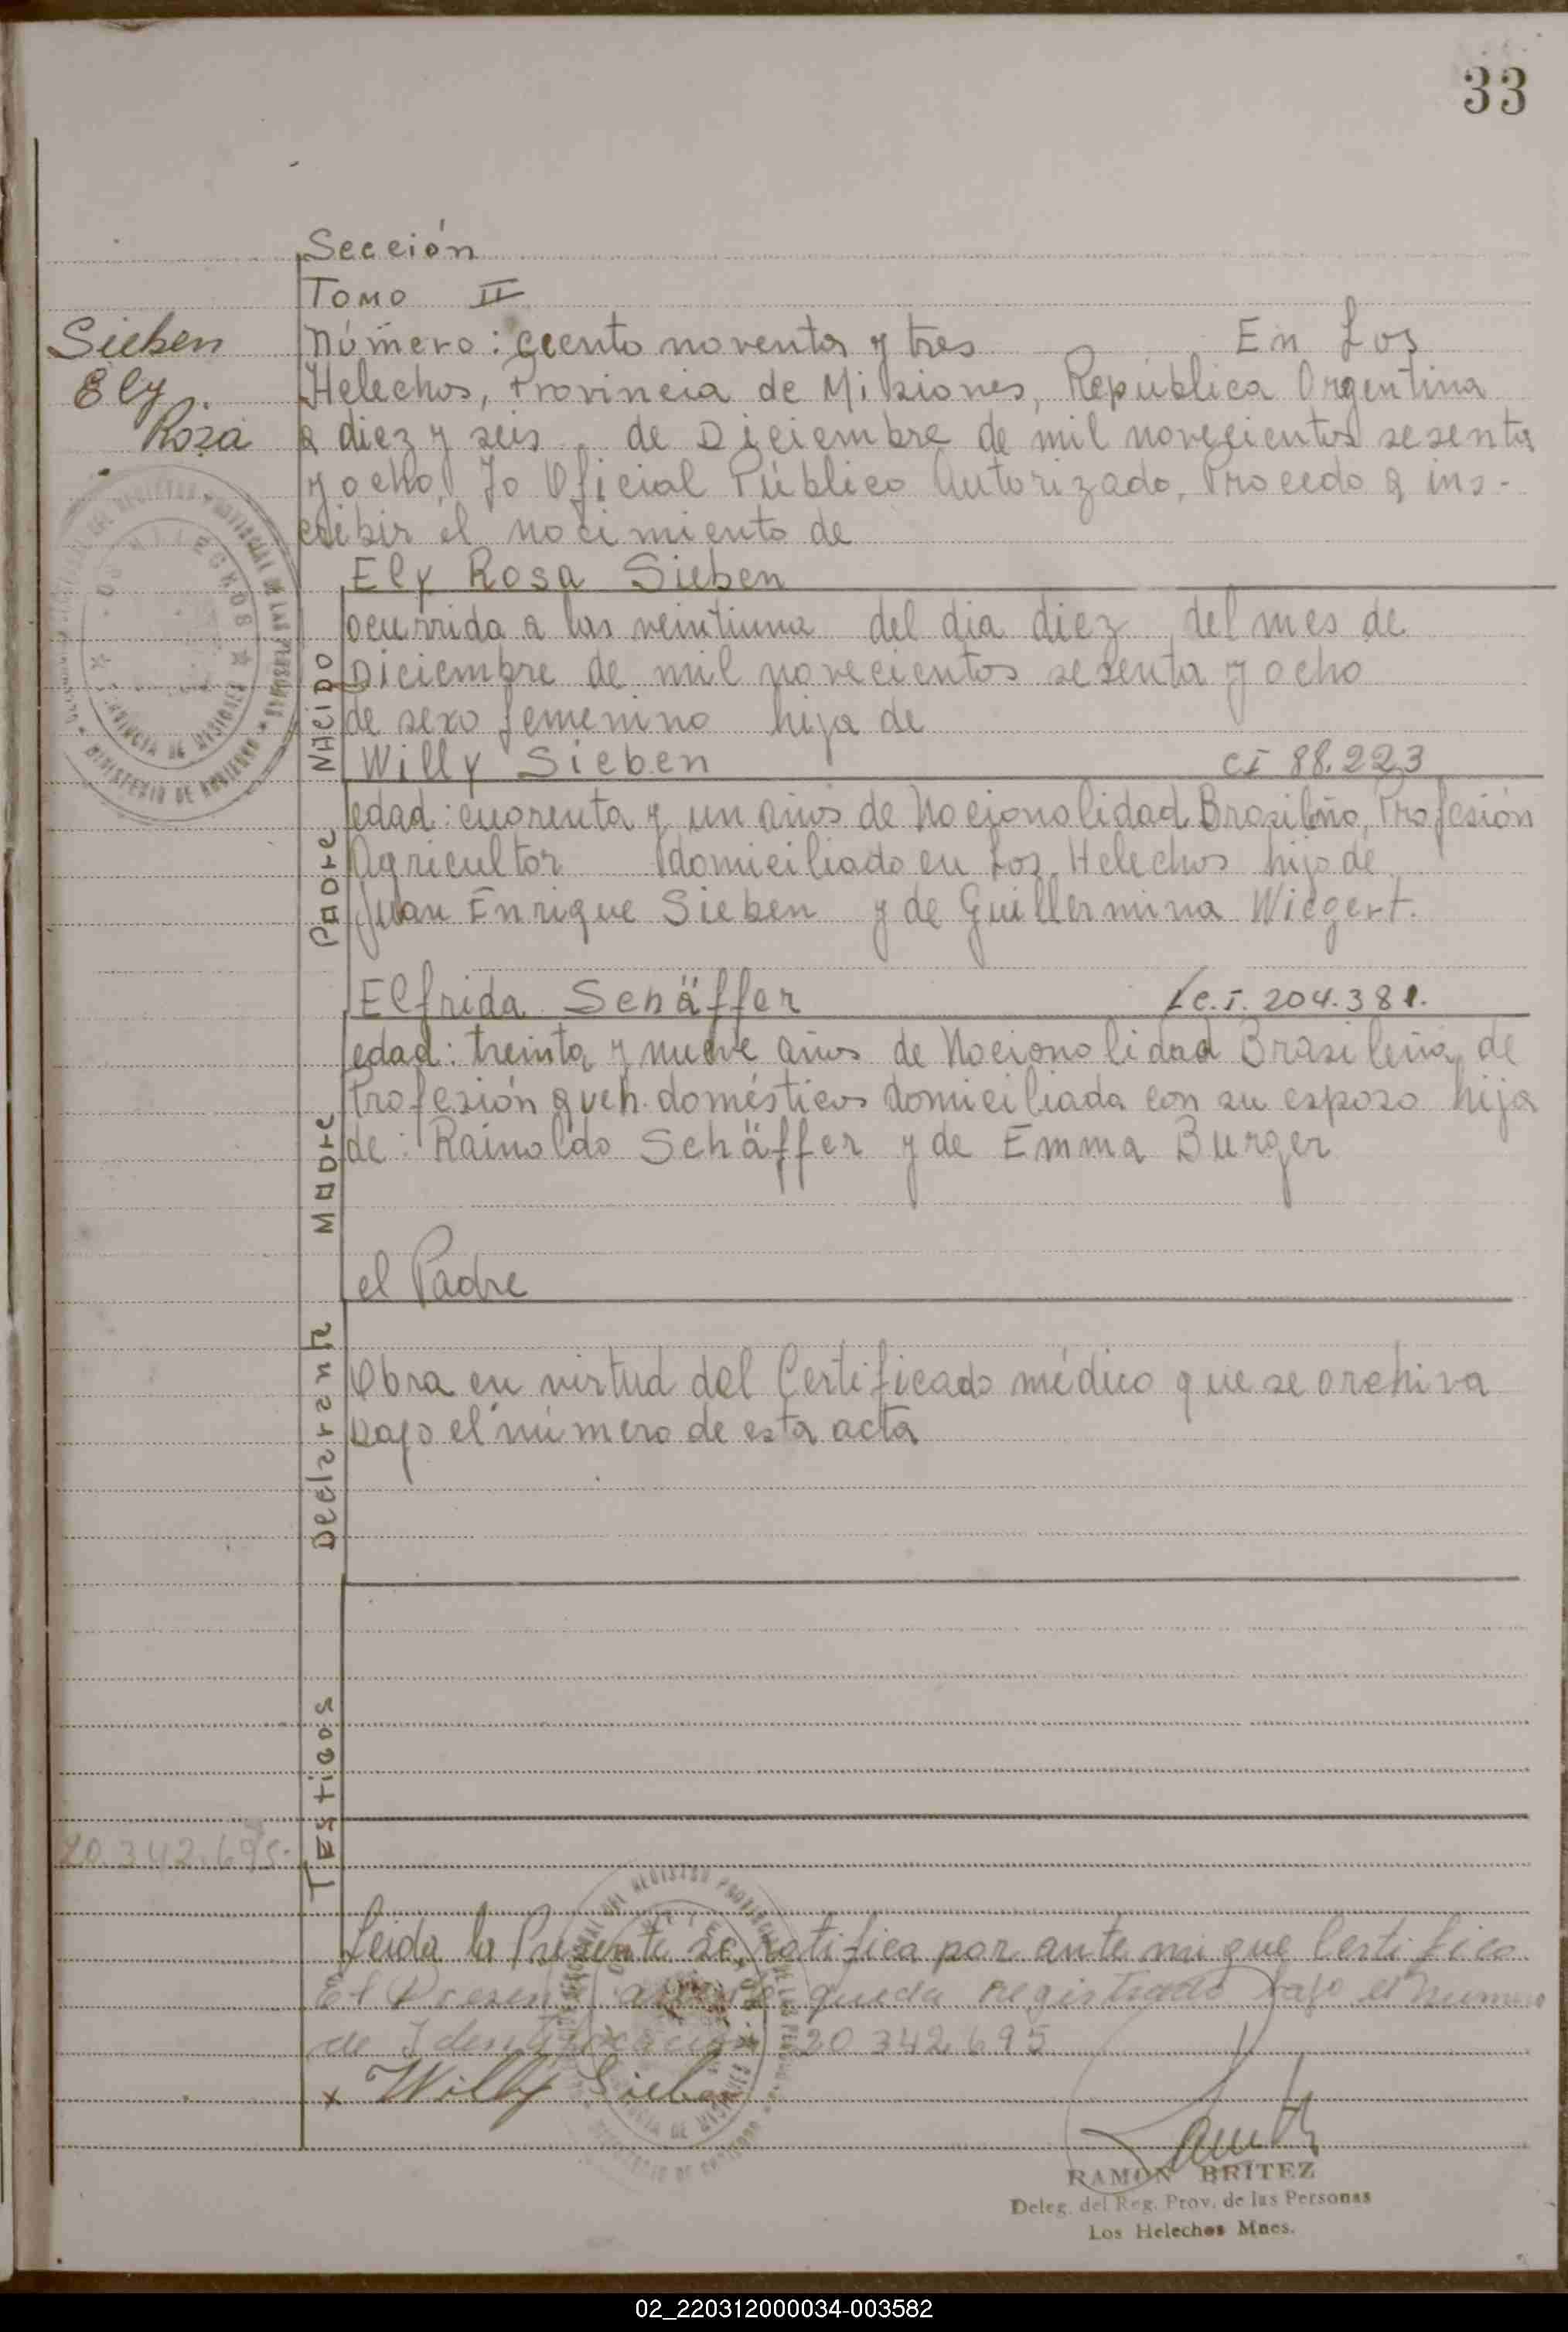 33
Sección
Tomo II
Sieben
Ely
Rosa
Número: ciento noventa y tres En Los
Helechos, Provincia de Misiones, República Argentina
a diez y seis de Diciembre de mil novecientos sesenta
y ocho, Yo Oficial Público Autorizado, Procedo a ins-
cribir el nacimiento de
NACIDO
Ely Rosa Sieben
ocurrida a las veintiuna del dia diez del mes de
Diciembre de mil novecientos sesenta y ocho
de sexo femenino hija de
Padre
Willy Sieben CI 88.223
edad: cuarenta y un años de Nacionalidad Brasileño, Profesión
Agricultor domiciliado en Los Helechos hijo de
Juan Enrique Sieben y de Guillermina Wiegert.
Madre
Elfrida Schäffer C.I. 204.381.
edad: treinta y nueve años de Nacionalidad Brasileña, de
Profesión queh. domésticos domiciliada con su esposo hija
de: Rainoldo Schäffer y de Emma Burger
Declarante
el Padre
Obra en virtud del Certificado médico que se archiva
bajo el número de esta acta
Testigos
20.342.695.
Leida la Presente se ratifica por ante mi que Certifico
El Presente queda registrado bajo el numero
de Identificacion 20 342 695
x Willy Sieben
RAMON BRITEZ
Deleg. del Reg. Prov. de las Personas
Los Helechos Mnes.
02_220312000034-003582